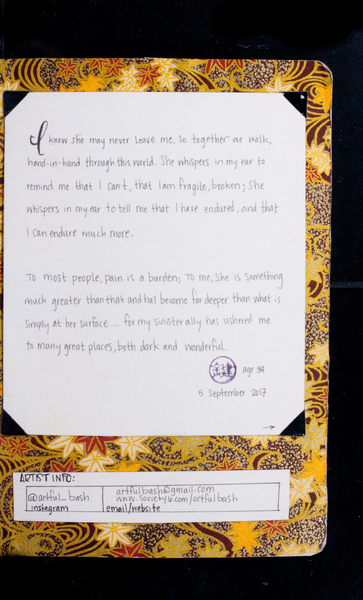 I know she may never leave me, so together we walk,
hand-in-hand through this world. She whispers in my ear to
remind me that I can't, that I am fragile, broken; She
whispers in my ear to tell me that I have endured, and that
I can endure much more.
To most people, pain is a burden; To me, she is something
much greater than that and has become far deeper than what is
simply at her surface... for my sinister ally has ushered me
to many great places, both dark and wonderful.
age 34
5 September 2017
ARTIST INFO:
@artful_bash
instagram
artfulbash@gmail.com
www.society6.com/artfulbash
email/website